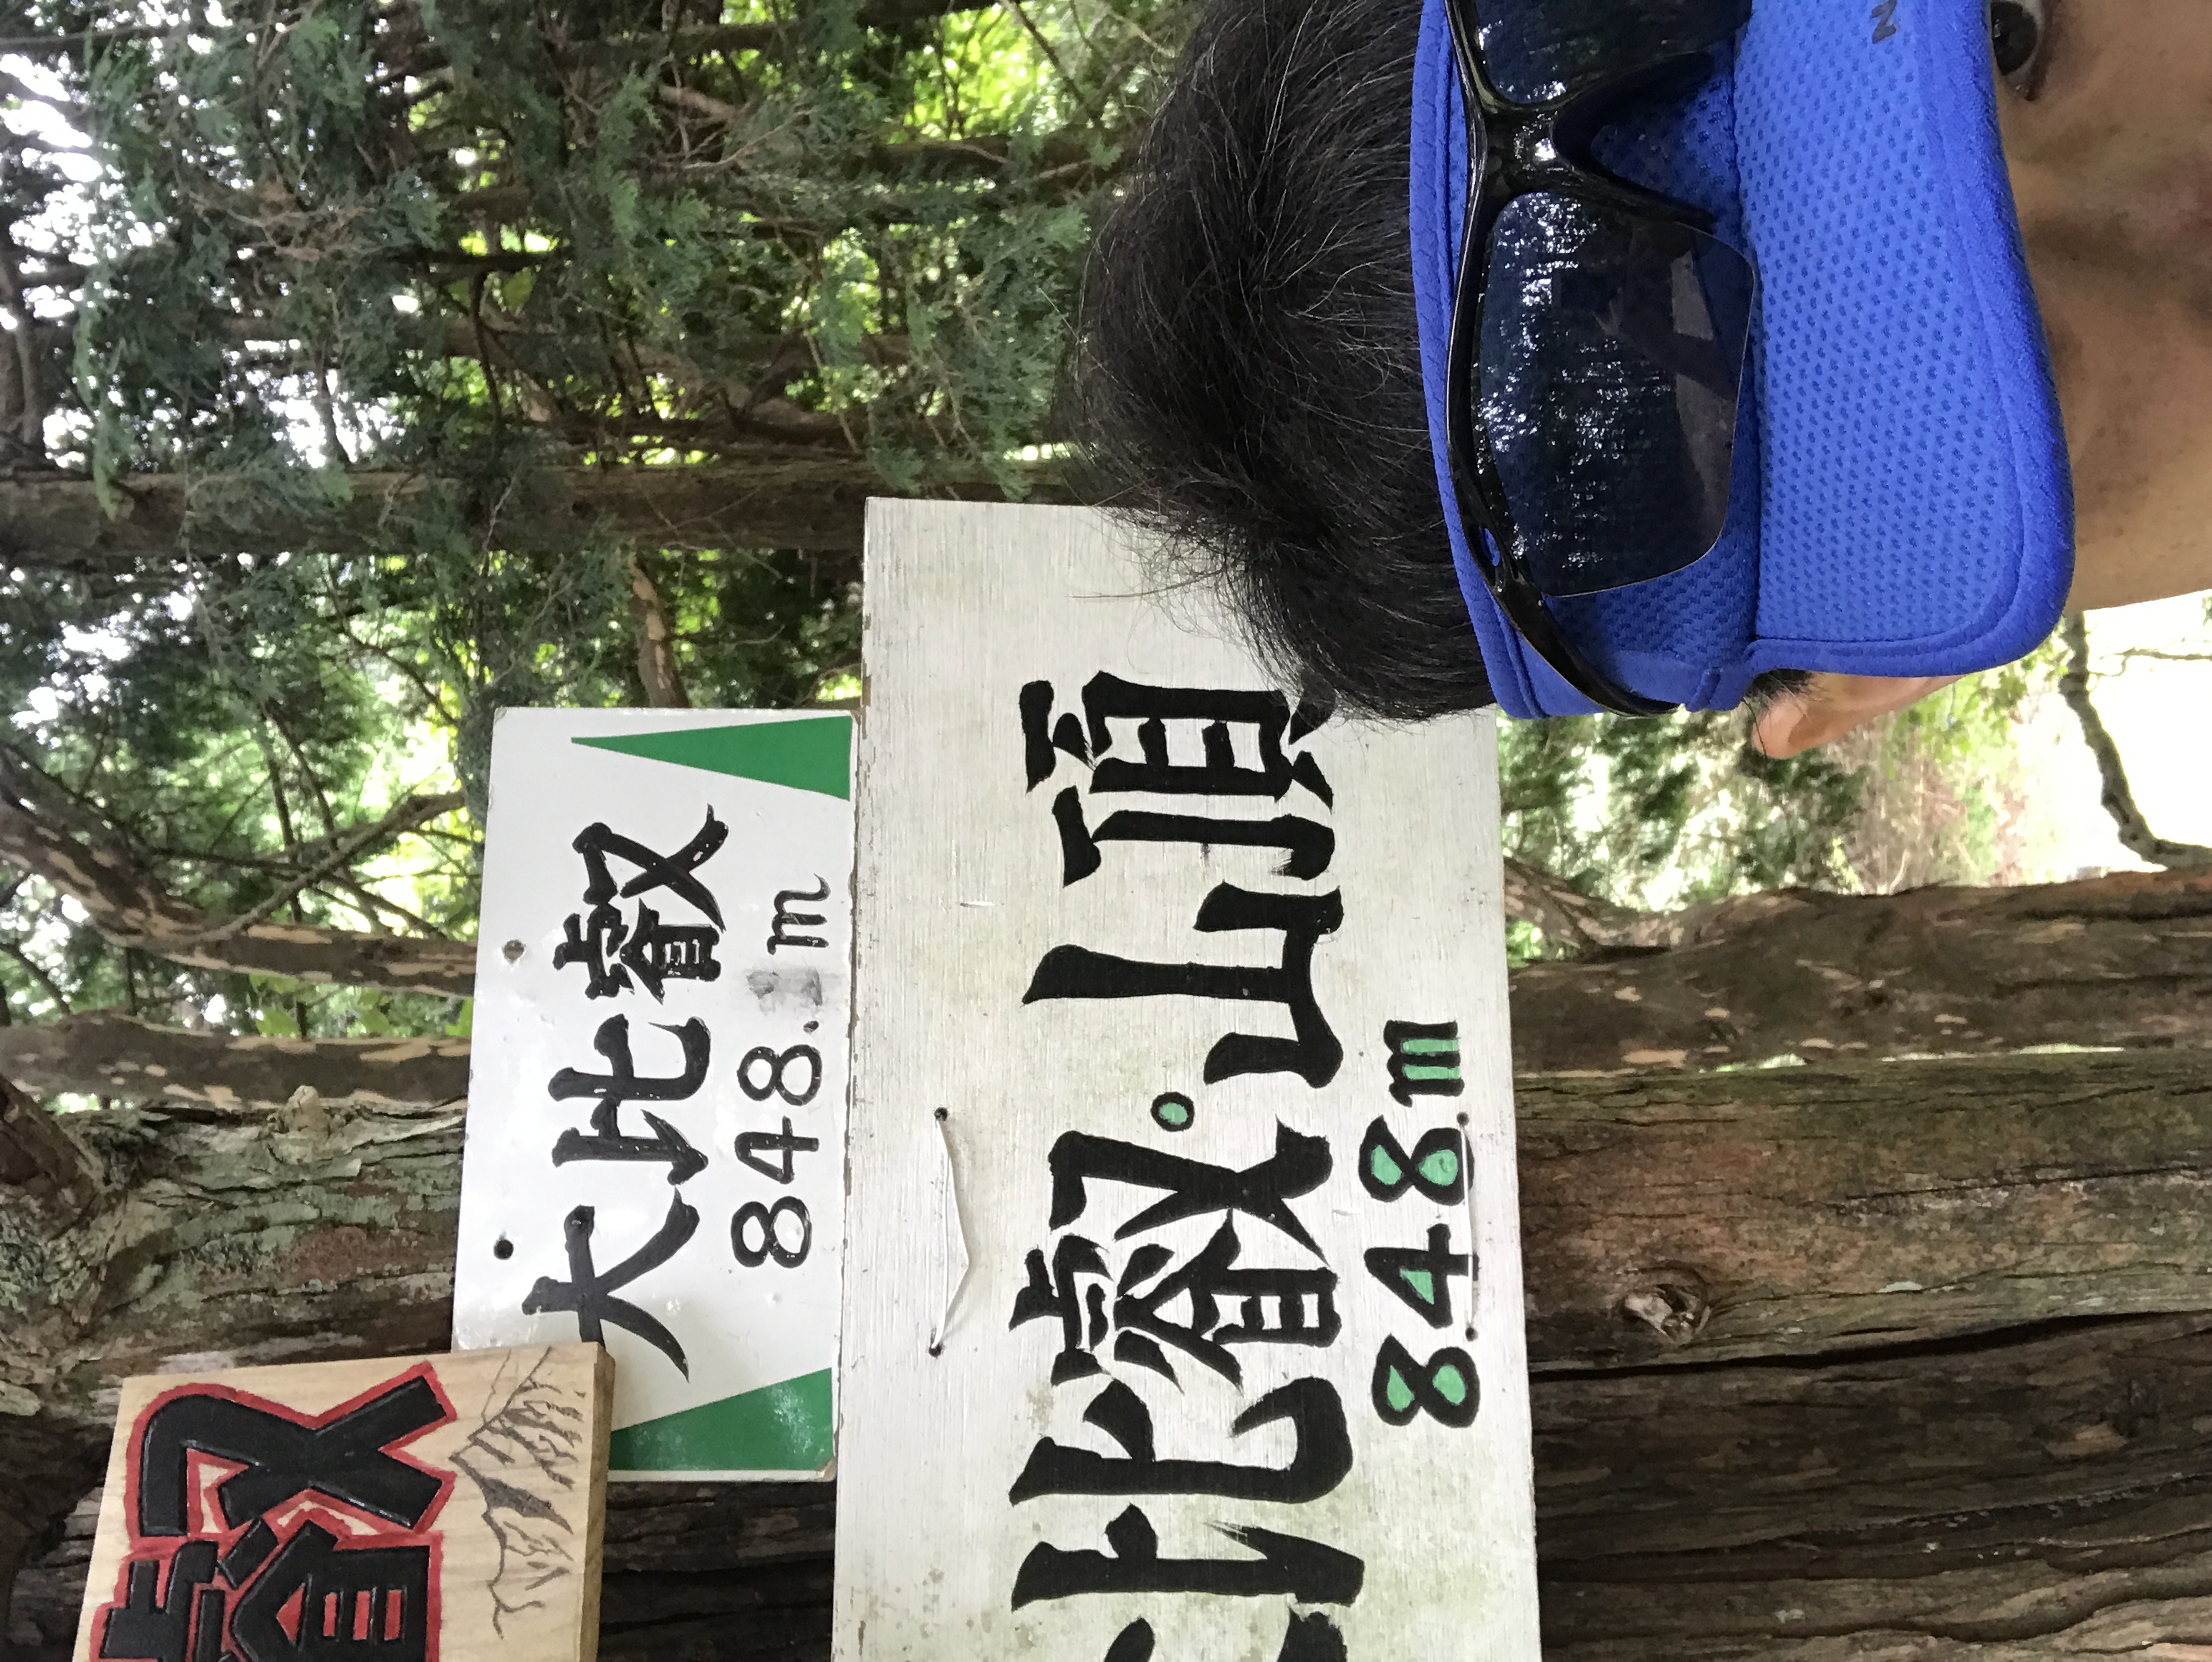 叡
大比叡
848. m
比叡・山頂
848m